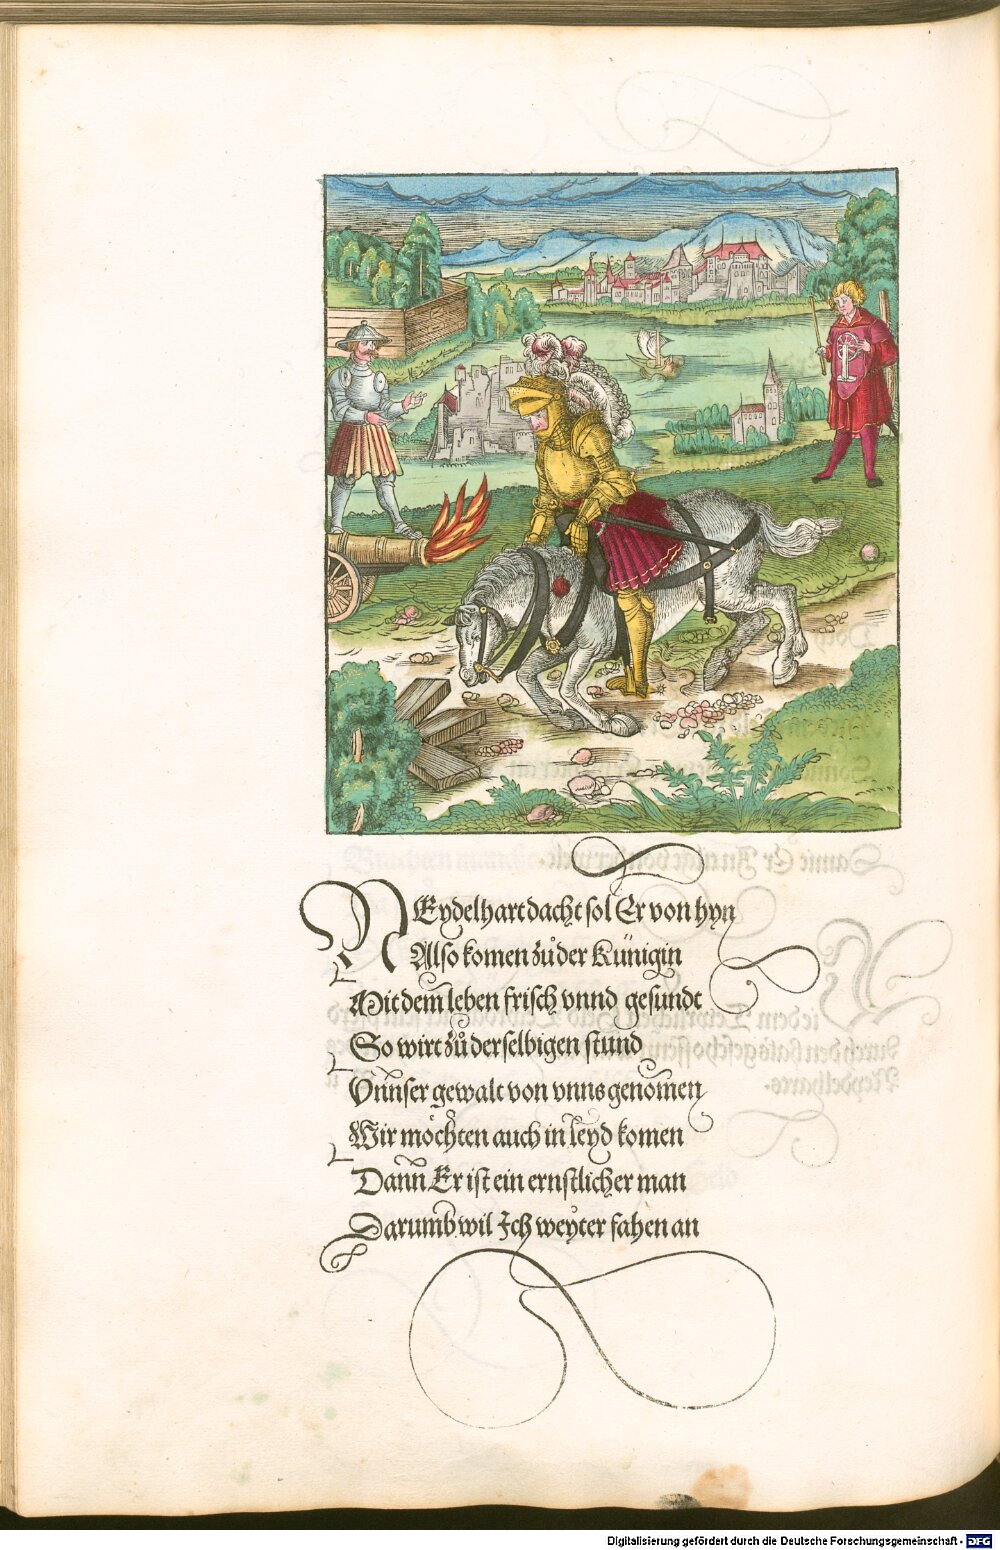 NEydelhart dacht sol Er von hyn
Also komen zuͦ der Künigin
Mit dem leben frisch vnnd gesundt
So wirt zuͦ derselbigen stund
Vnnser gewalt von vnns genomen
Wir möchten auch in leyd komen
Dann Er ist ein ernstlicher man
Darumb wil Ich weyter fahen an
Digitalisierung gefördert durch die Deutsche Forschungsgemeinschaft - DFG